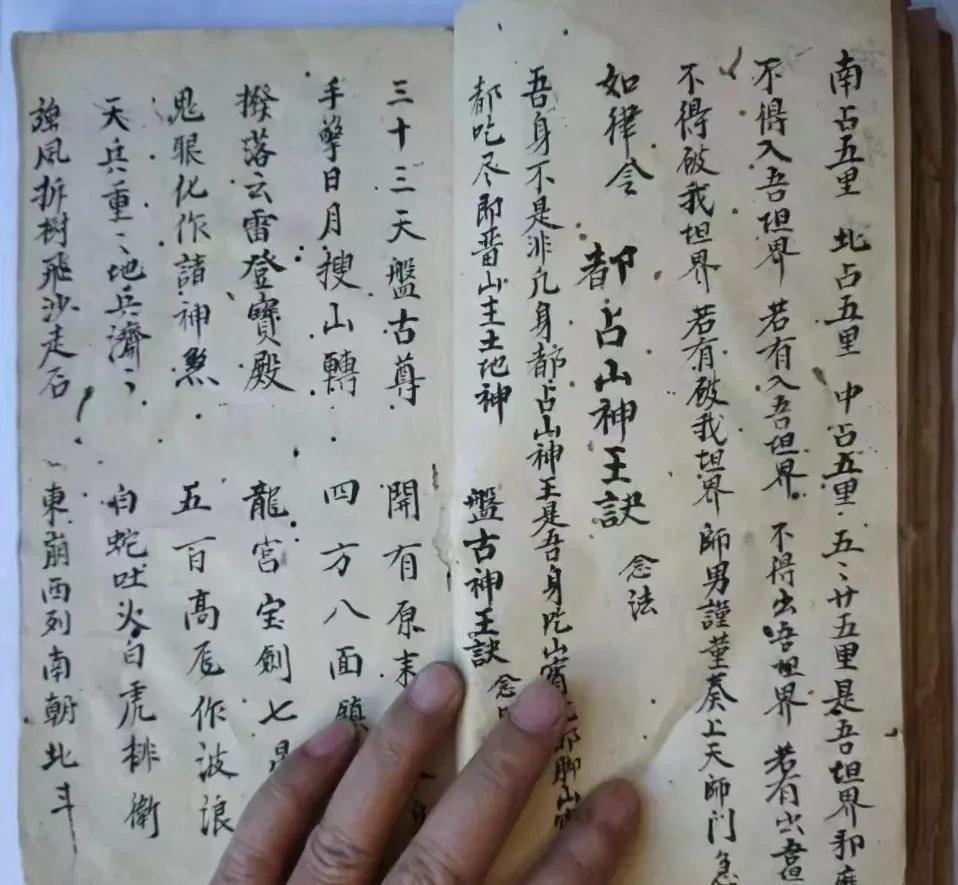 南占五里 北占五里 中占五里 五〻廿五里是吾坦界邪
不得入吾坦界 若有入吾坦界 不得出吾坦界 若有出吾坦
不得破我坦界 若有破我坦界 師男謹董奏上天師門急
如律令 都占山神王訣 念法
吾身不是非凡身都占山神王是吾身吃山
都吃尽即晋山主土地神 盤古神王訣 念
三十三天盤古尊 開有原来
手擎日月搜山轉 四方八面鎮
撥落云雷登寶殿 龍宫宝劍七
鬼眼化作諸神煞 五百高辰作波浪
天兵重〻地兵濟〻 白蛇吐火白虎排衛
風拆樹飛沙走石 東崩西列南朝北斗